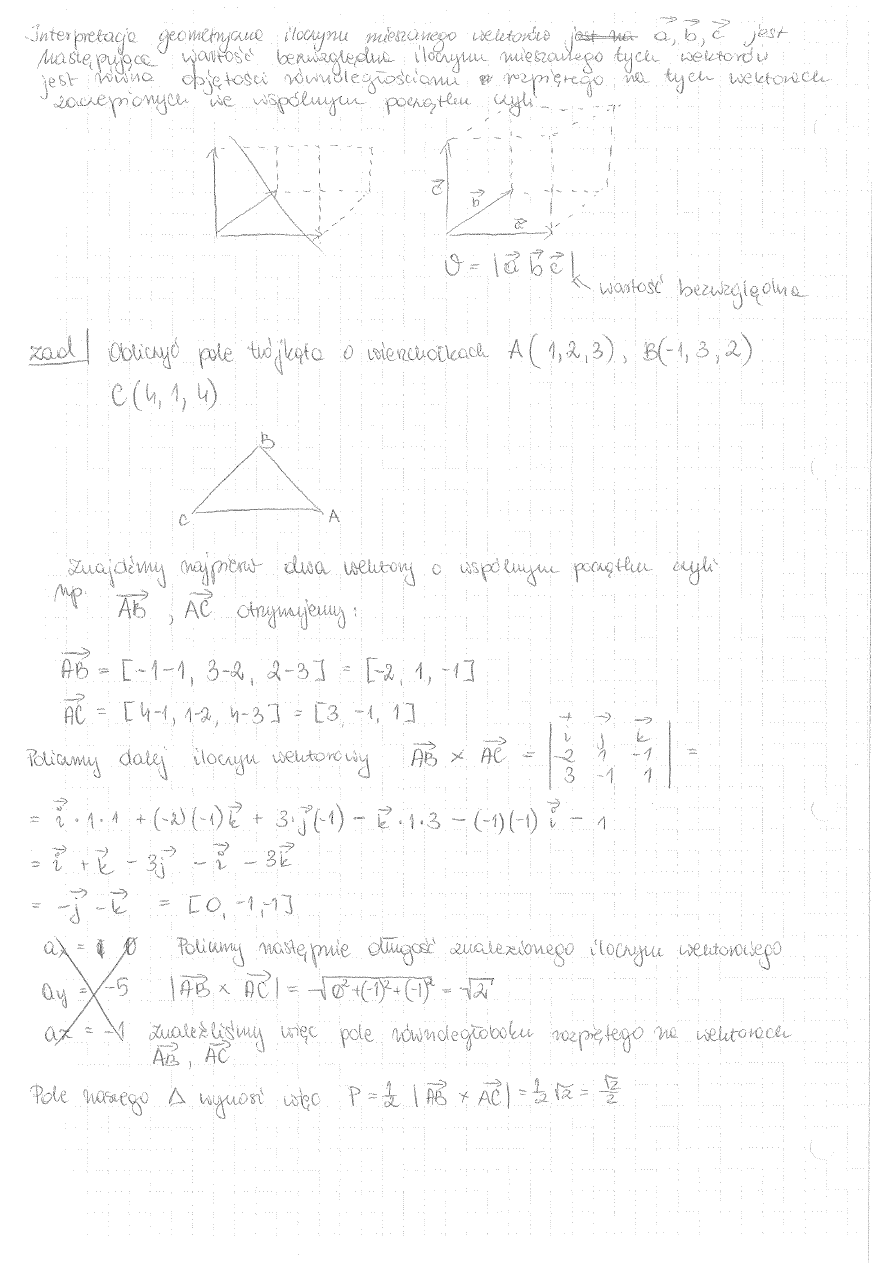 Interpretacja geometryczna iloczynu mieszanego wektorów jest na a, b, c jest
następująca wartość bezwzględna iloczynu mieszanego tych wektorów
jest równa objętości równoległościanu rozpiętego na tych wektorach
zaczepionych we wspólnym początku czyli
c
b
a
V = |a b c|
wartość bezwzględna
zad Obliczyć pole trójkąta o wierzchołkach A(1,2,3), B(-1,3,2)
C(4,1,4)
B
C A
Znajdźmy najpierw dwa wektory o wspólnym początku czyli
np. AB, AC otrzymujemy:
AB = [-1-1, 3-2, 2-3] = [-2, 1, -1]
AC = [4-1, 1-2, 4-3] = [3, -1, 1]
i j k
Policzmy dalej iloczyn wektorowy AB × AC = -2 1 -1 =
3 -1 1
= i·1·1 + (-2)(-1)k + 3·j(-1) - k·1·3 - (-1)(-1)i - 1
= i + k - 3j - i - 3k
= -j - k = [0, -1, -1]
ax = 0 Policzmy następnie długość znalezionego iloczynu wektorowego
ay = -5 |AB × AC| = √0²+(-1)²+(-1)² = √2
az = -1 znaleźliśmy więc pole równoległoboku rozpiętego na wektorach
AB, AC
Pole naszego Δ wynosi więc P = 1/2 |AB × AC| = 1/2 √2 = √2/2